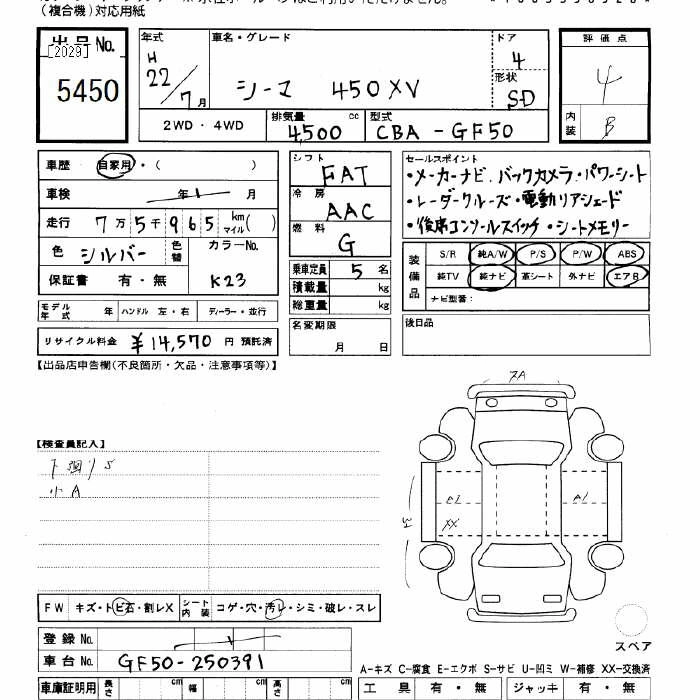 (複合機)対応用紙
出品No. [2029] 5450
年式 H 22/7月
車名・グレード シーマ 450XV
ドア 4
形状 SD
評価点 4
内装 B
2WD・4WD
排気量 4,500 cc
型式 CBA-GF50
車歴 自家用・( )
車検 年 月
走行 7万5千965 km マイル( )
色 シルバー 色替 カラーNo. K23
保証書 有・無
シフト FAT
冷房 AAC
燃料 G
乗車定員 5名
積載量 kg
総重量 kg
名変期限 月 日
セールスポイント
・メーカーナビ.バックカメラ・パワーシート
・レーダークルーズ・電動リアシェード
・後席コンソールスイッチ・シートメモリー
装備品 S/R 純A/W P/S P/W ABS
純TV 純ナビ 革シート 外ナビ エアB
ナビ型番:
後日品
モデル年式 年 ハンドル 左・右 ディーラー・並行
リサイクル料金 ¥14,570円 預託済
【出品店申告欄(不良箇所・欠品・注意事項等)】
【検査員記入】
小A
A1
A1
XX
W
FW キズ・トビ石・割レX シート内装 コゲ・穴・汚レ・シミ・破レ・スレ
登録No.
車台No. GF50-250391
スペア
A-キズ C-腐食 E-エクボ S-サビ U-凹ミ W-補修 XX-交換済
車庫証明用 長さ cm 幅 cm 高さ cm
工具 有・無 ジャッキ 有・無